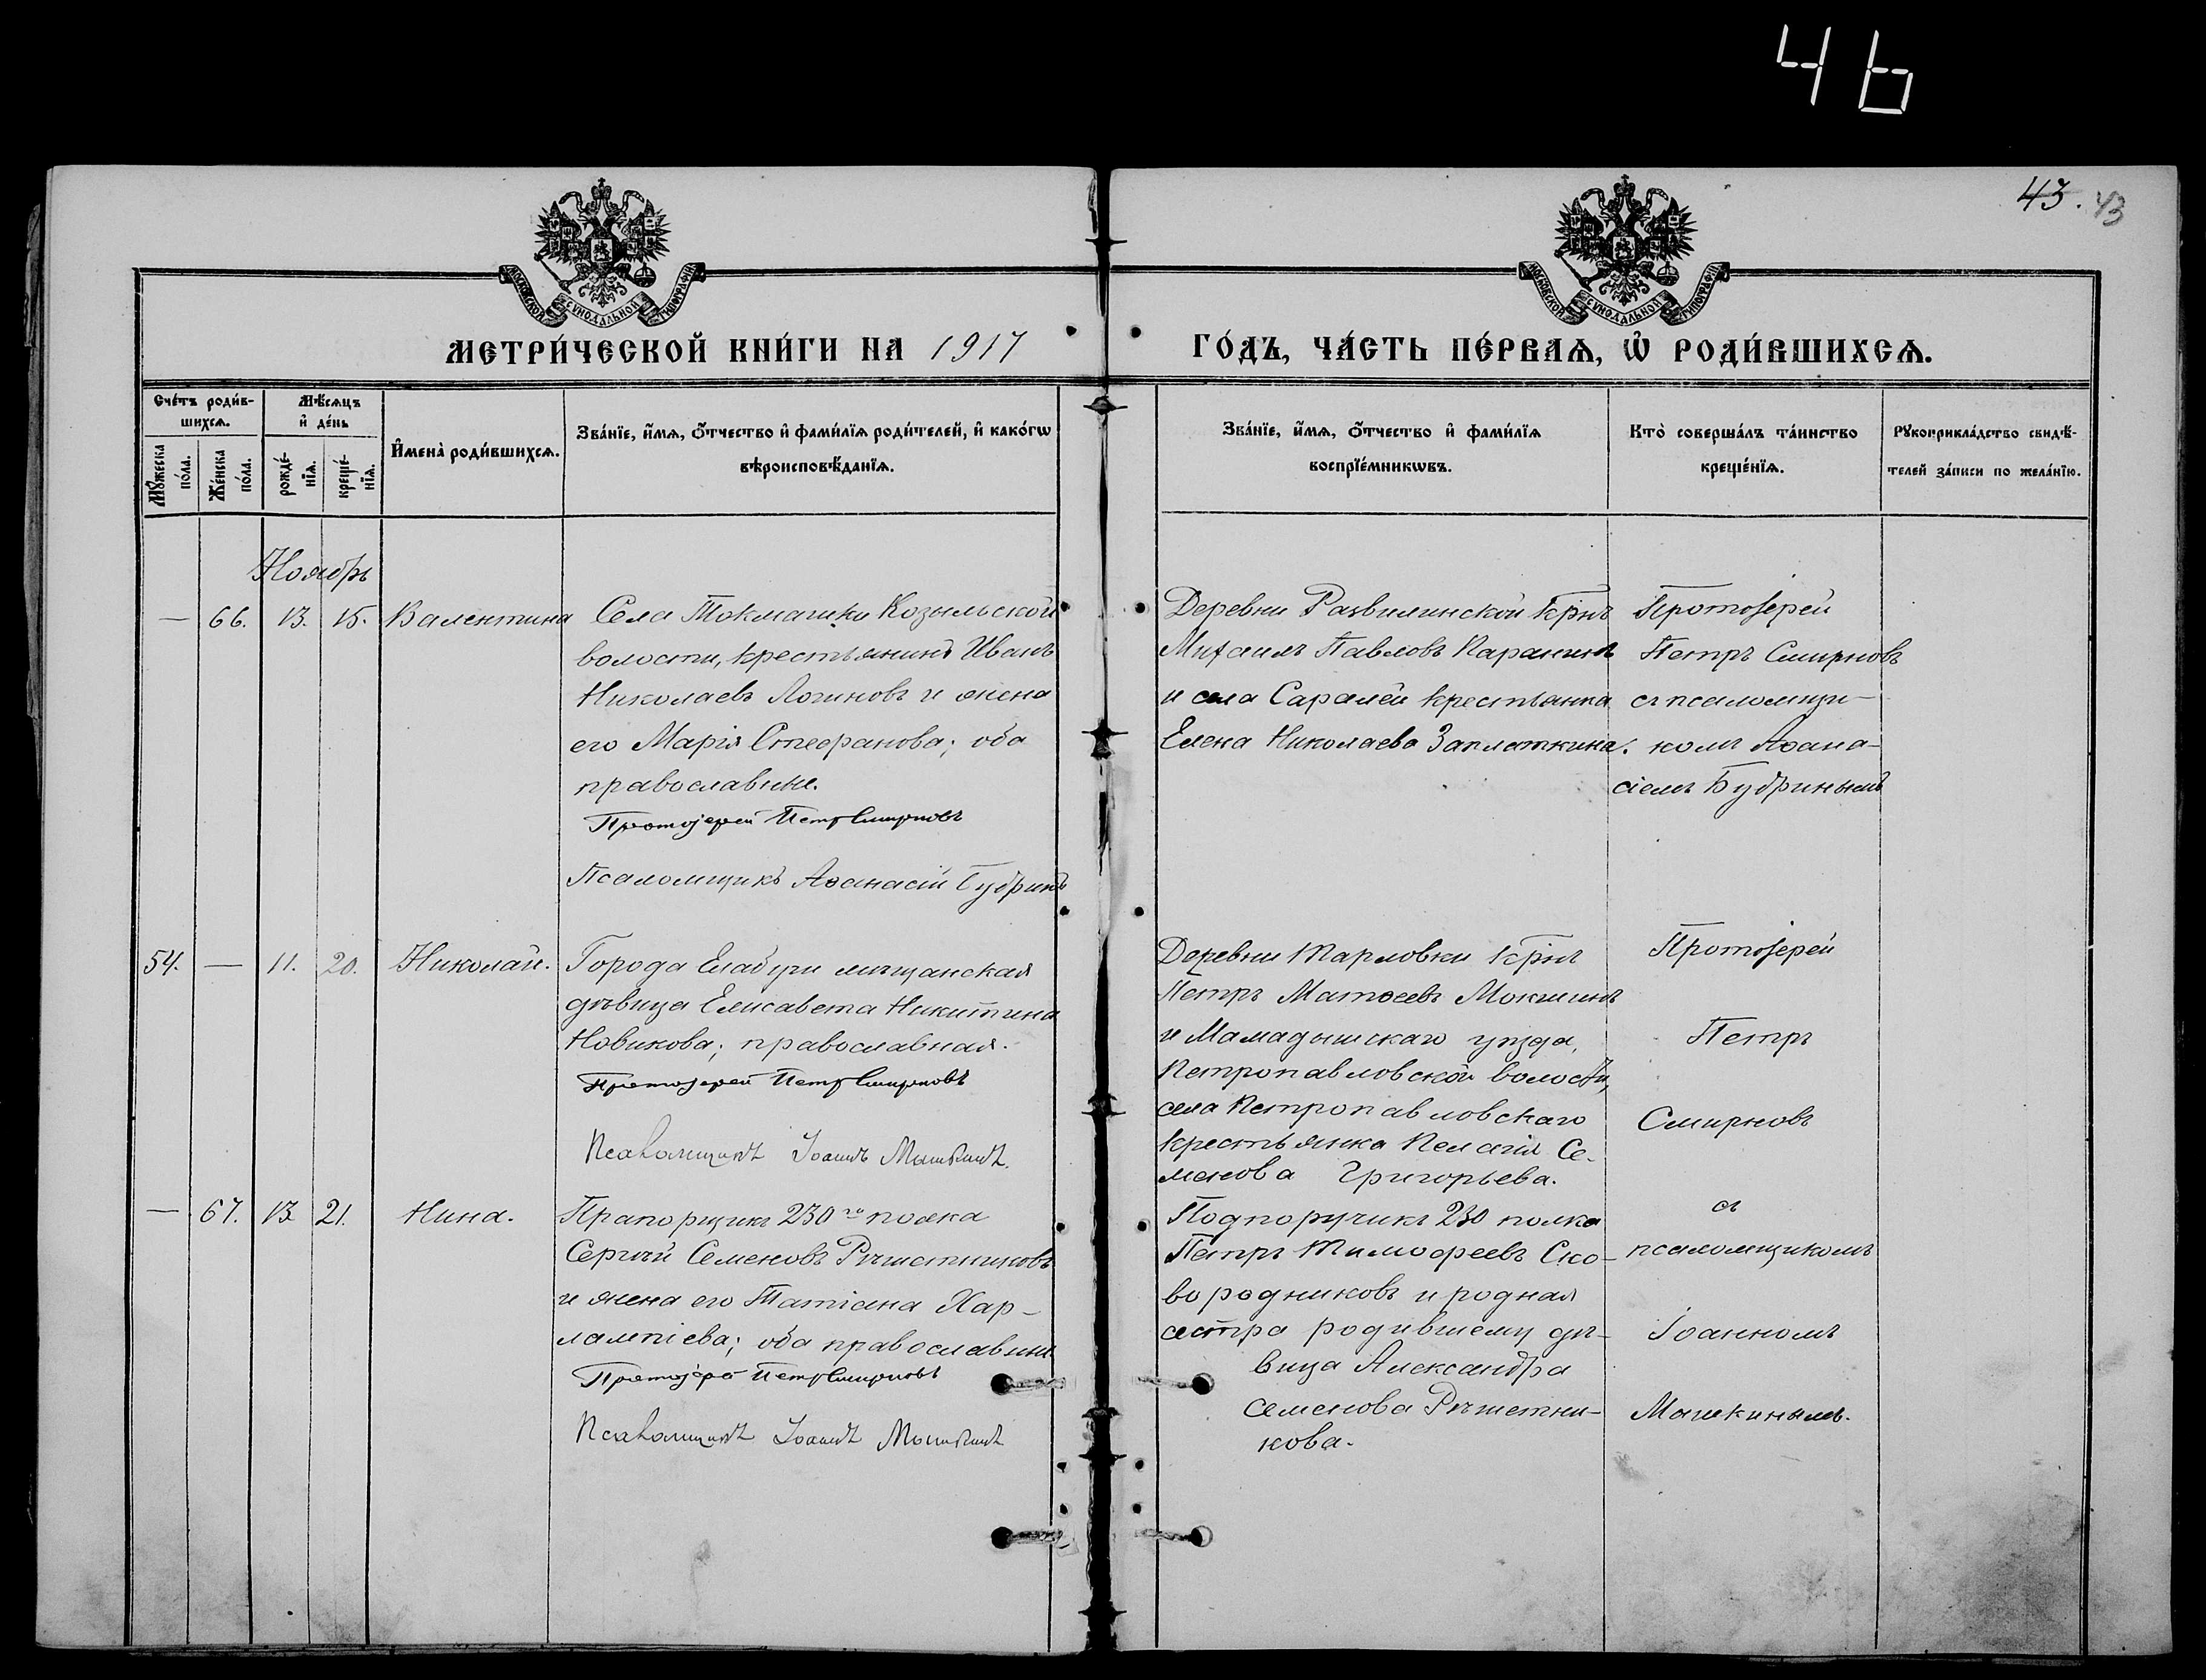 46
43. 43
МОСКОВСКОЙ СѴНОДАЛЬНОЙ ТИПОГРАФІИ
МОСКОВСКОЙ СѴНОДАЛЬНОЙ ТИПОГРАФІИ
МЕТРИ́ЧЕСКОЙ КНИ́ГИ НА 1917
ГО́ДЪ, ЧА́СТЬ ПЕ́РВАѦ, Ѡ҆ РОДИ́ВШИХСѦ.
Сче́тъ роди́в-
шихсѧ.
Мꙋ́жеска
по́ла.
Же́нска
по́ла.
Мѣ́сѧцъ
и҆ де́нь
рожде́-
нїѧ.
креще́-
нїѧ.
И҆мена̀ роди́вшихсѧ.
Зва́нїе, и҆́мѧ, ѻ҆́тчество и҆ фами́лїѧ роди́телей, и҆ како́гѡ
вѣроисповѣ́данїѧ.
Зва́нїе, и҆́мѧ, ѻ҆́тчество и҆ фами́лїѧ
воспрїе́мникѡвъ.
Кто̀ соверша́лъ та́инство
креще́нїѧ.
Рꙋкоприкла́дство свидѣ́-
телей за́писи по жела́нїю.
Ноябрь
— 66. 13. 15. Валентина
Села Токмачики Козыльской
волости, крестьянинъ Иванъ
Николаевъ Логиновъ и жена
его Марія Стефанова; оба
православные.
Протоіерей Петръ Смирновъ
Псаломщикъ Аѳанасій Бубринъ
Деревни Развилинской кр-нъ
Михаилъ Павловъ Карангинъ
и села Саралей крестьянка
Елена Николаева Заплаткина.
Протоіерей
Петръ Смирновъ
съ псаломщи-
комъ Аѳана-
сіемъ Бубринымъ
54. — 11. 20. Николай.
Города Елабуги мѣщанская
дѣвица Елисавета Никитина
Новикова; православная.
Протоіерей Петръ Смирновъ
Псаломщикъ Іоаннъ Машкинъ.
Деревни Тарловки кр-нъ
Петръ Матѳеевъ Мокшинъ
и Мамадышскаго уѣзда,
Петропавловской волости,
села Петропавловскаго
крестьянка Пелагія Се-
менова Григорьева.
Протоіерей
Петръ
Смирновъ
— 67. 13 21. Нина.
Прапорщикъ 230го полка
Сергѣй Семеновъ Рѣшетниковъ
и жена его Татіана Хар-
лампіева; оба православные
Протоіерей Петръ Смирновъ
Псаломщикъ Іоаннъ Машкинъ
Подпоручикъ 230 полка
Петръ Тимофеевъ Ско-
вородниковъ и родная
сестра родившему дѣ-
вица Александра
Семенова Рѣшетни-
кова.
съ
псаломщикомъ
Іоанномъ
Машкинымъ.